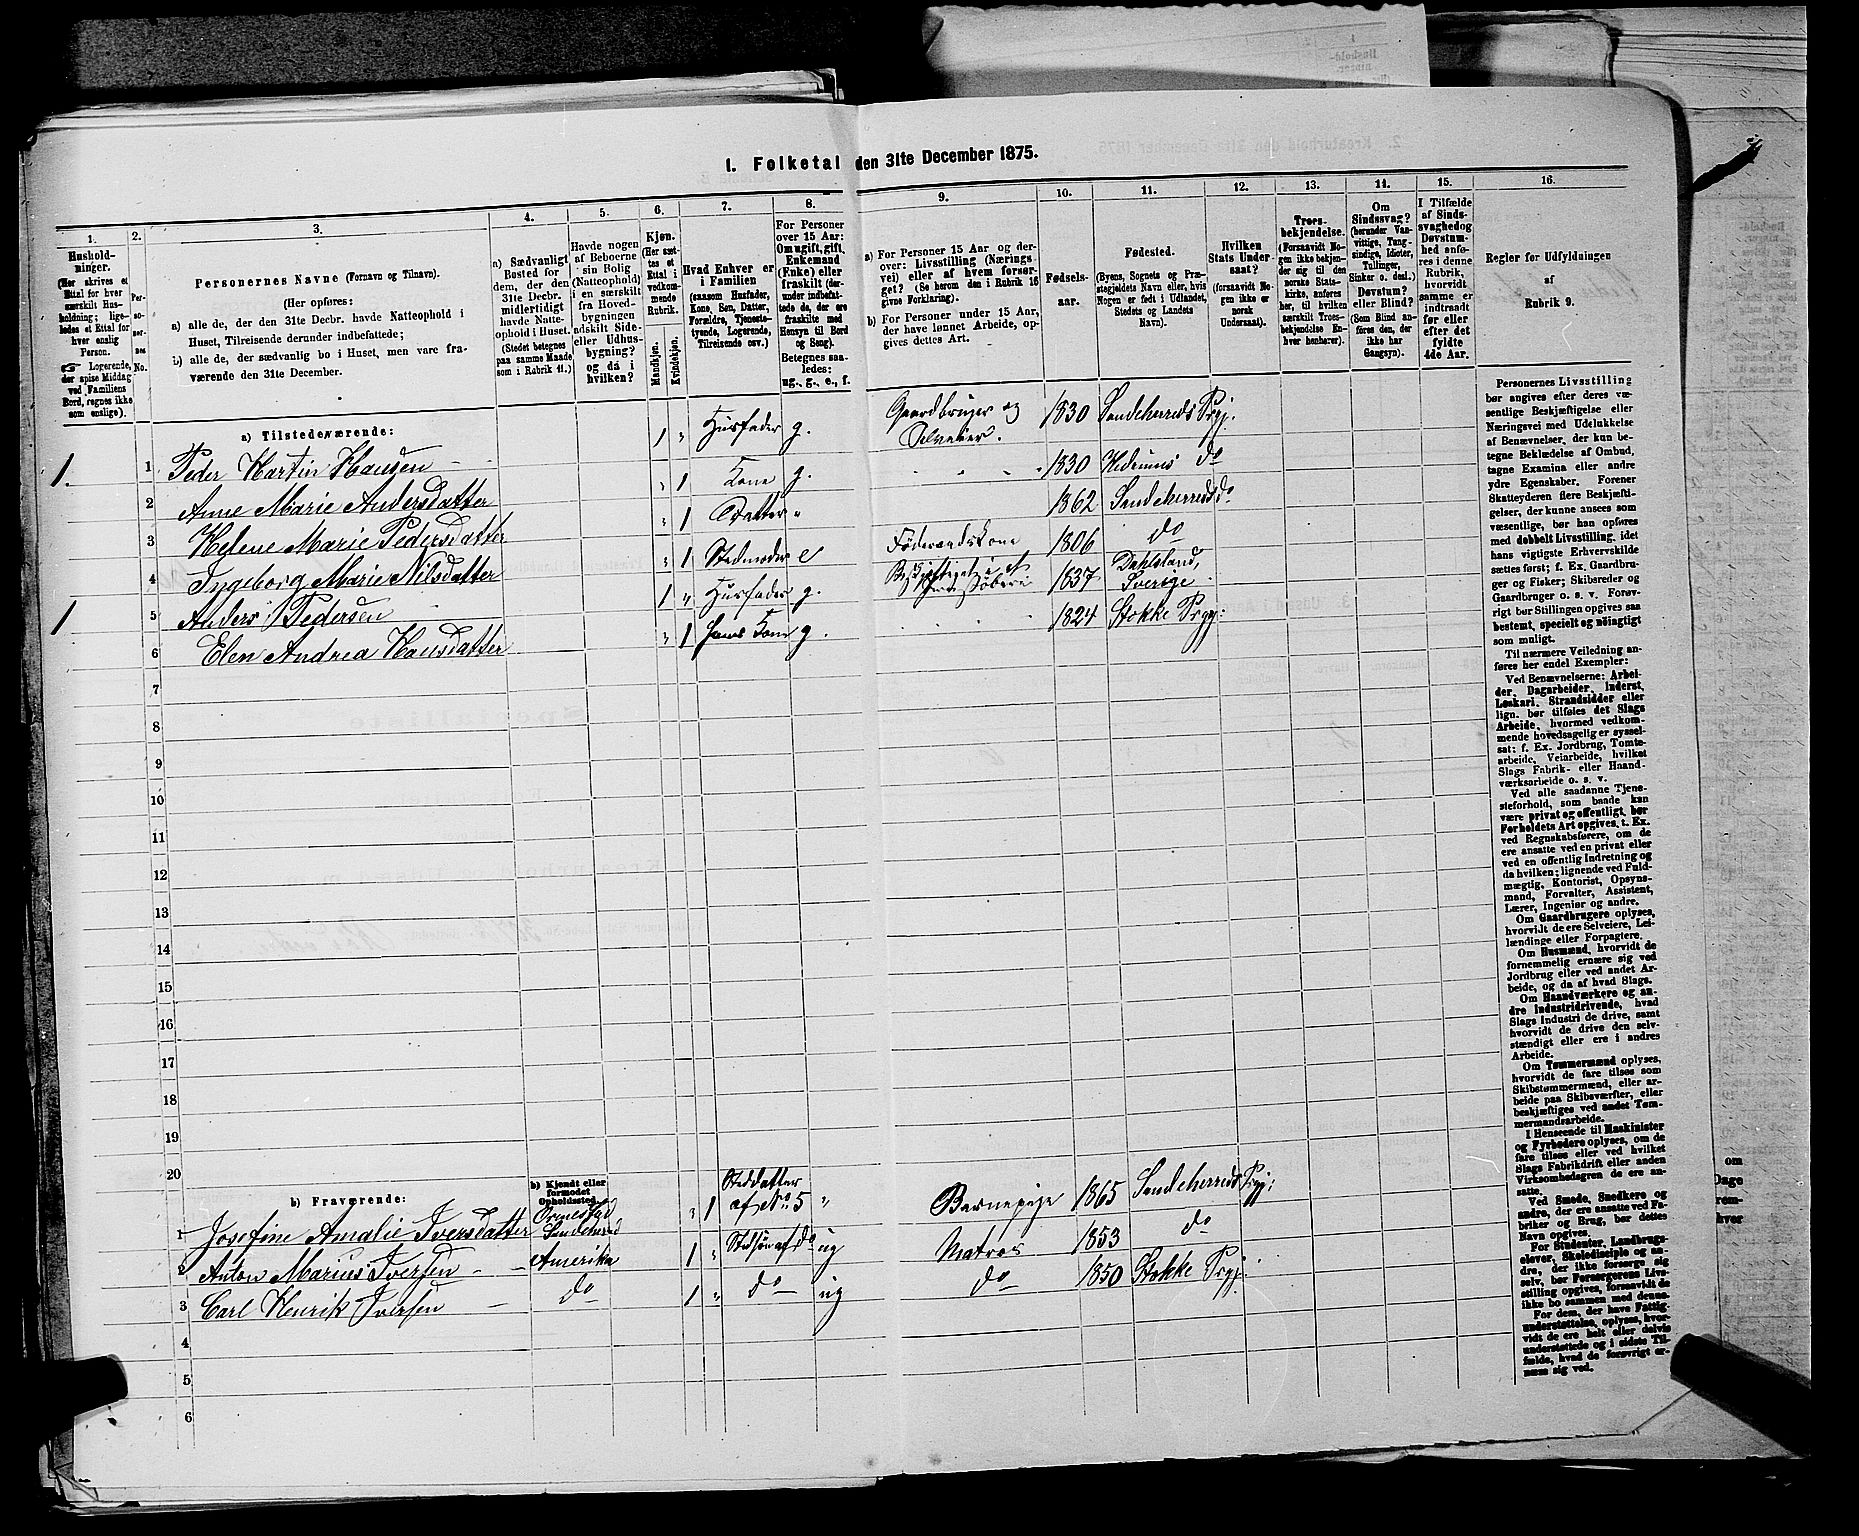 1. Folketal den 31te December 1875.
1.
Hushold-
ninger.
(Her skrives et
Ettal for hver
særskilt Hus-
holdning; lige-
ledes et Ettal for
hver enslig
Person.
Logerende,
der spise Middag
ved Familiens
Bord, regnes ikke
som enslige).
2.
Per-
so-
ner-
nes
No.
3.
Personernes Navne (Fornavn og Tilnavn).
(Her opføres:
a) alle de, der den 31te Decbr. havde Natteophold i
Huset, Tilreisende derunder indbefattede;
b) alle de, der sædvanlig bo i Huset, men vare fra-
værende den 31te December.
4.
a) Sædvanligt
Bosted for
dem, der den
31te Decbr.
midlertidigt
havde Natte-
ophold i Huset.
(Stedet betegnes
paa samme Maade
som i Rubrik 11.)
5.
Havde nogen
af Beboerne
sin Bolig
(Natteophold)
i en særskilt
fra Hoved-
bygningen
adskilt Side-
eller Udhus-
bygning?
og da i
hvilken?
6.
Kjøn.
(Her sæt-
tes et
Ettal i
vedkom-
mende
Rubrik.
Mandkjøn.
Kvindekjøn.
7.
Hvad Enhver er
i Familien
(saasom Husfader,
Kone, Søn, Datter,
Forældre, Tjeneste-
tyende, Logerende,
Tilreisende osv.)
8.
For Personer
over 15 Aar:
Om ugift, gift,
Enkemand
(Enke) eller
fraskilt (der-
under indbefat-
tede de, der ere
fraskilte med
Hensyn til Bord
og Seng).
Betegnes saa-
ledes:
ug., g., e., f.
9.
a) For Personer 15 Aar og der-
over: Livsstilling (Nærings
vei) eller af hvem forsør-
get? (Se herom den i Rubrik 16
givne Forklaring).
b) For Personer under 15 Aar,
der have lønnet Arbeide, op-
gives dettes Art.
10.
Fødsels-
aar.
11.
Fødested.
(Byens, Sognets og Præ-
stegjeldets Navn eller, hvis
Nogen er født i Udlandet,
Stedets og Landets
Navn).
12.
Hvilken
Stats Under-
saat?
(forsaavidt No-
gen ikke er
norsk
Undersaat).
13.
Troes-
bekjendelse.
(Forsaavidt No-
gen ikke bekjen-
der sig til den
norske Stats-
kirke, anføres
her, til hvilken
særskilt Troes-
bekjendelse En-
hver henhører).
14.
Om
Sindssvag?
(herunder Van-
vittige, Tung-
sindige, Idioter,
Tullinger,
Sinker o. desl.)
Døvstum?
eller Blind?
(Som Blind an-
føres den, der
ikke har
Gangsyn).
15.
I Tilfælde
af Sinds-
svaghed og
Døvstum-
hed anfø-
res i denne
Rubrik,
hvorvidt
samme er
indtraadt
før eller
efter det
fyldte
4de Aar.
16.
Regler for Udfyldningen
af
Rubrik 9.
a) Tilstedeværende:
1. 1 Peder Martin Hansen 1 " Husfader g. Gaardbruger og Selveier. 1830 Sandeherreds Prgj.
2 Anne Marie Andersdatter " 1 Kone g. 1830 Hedrums do
3 Helene Marie Pedersdatter " 1 Datter " 1862 Sandeherreds do
4 Ingeborg Marie Nilsdatter " 1 Stedmoder e Föderaadskone 1806 do
1 5 Anders Pedersen 1 " Husfader g. 1837 Dahlsland, Sverige
6 Elen Andrea Hansdatter " 1 hans Kone g. 1824 Stokke Prgj:
7
8
9
10
11
12
13
14
15
16
17
18
19
20
b) Fraværende:
b) Kjendt eller
formodet
Opholdssted.
1 Josefine Amalie Iversdatter Sandeherred " 1 Steddatter af No 5 " Barnepige 1865 Sandeherreds Prgj:
2 Anton Marius Iversen Amerika 1 " Stedsøn af do ug Matros 1853 do
3 Carl Henrik Iversen do 1 " do ug do 1850 Stokke Prgj.
4
5
6
Personernes Livsstilling
bør angives efter deres væ-
sentlige Beskjæftigelse eller
Næringsvei med Udelukkelse
af Benævnelser, der kun be-
tegne Beklædelse af Ombud,
tagne Examina eller andre
ydre Egenskaber. Forener
Skatteyderen flere Beskjæfti-
gelser, der kunne ansees som
væsentlige, bør han opføres
med dobbelt Livsstilling, idet
hans vigtigste Erhvervskilde
sættes først; f. Ex. Gaardbru-
ger og Fisker; Skibsreder og
Gaardbruger o. s. v. Forøv-
rigt bør Stillingen opgives saa
bestemt, specielt og nøiagtigt
som muligt.
Til nærmere Veiledning an-
føres her endel Exempler:
Ved Benævnelserne: Arbei-
der, Dagarbeider, Inderst,
Løskarl, Strandsidder eller
lign. bør tilføies det Slags
Arbeide, hvormed vedkom-
mende hovedsagelig er syssel-
sat: f. Ex. Jordbrug, Tomte-
arbeide, Veiarbeide, hvilket
Slags Fabrik- eller Haand-
værksarbeide o. s. v.
Ved alle saadanne Tjene-
steforhold, som baade kan
være privat og offentligt, bør
Forholdets Art opgives, t. Ex.
ved Regnskabsførere, om de
ere ansatte ved en privat eller
ved en offentlig Indretning og
da hvilken; lignende ved Fuld-
mægtig, Kontorist, Opsyns-
mand, Forvalter, Assistent,
Lærer, Ingeniør og andre.
Om Gaardbrugere oplyses,
hvorvidt de ere Selveiere, Lei-
lændinge eller Forpagtere.
Om Husmænd, hvorvidt de
fornemmelig ernære sig ved
Jordbrug eller ved andet Ar-
beide, og da af hvad Slags.
Om Haandværkere og an-
dre Industridrivende, hvad
Slags Industri de drive, samt
hvorvidt de drive den selv-
stændigt eller ere i andres
Arbeide.
Om Tømmermænd oplyses,
hvorvidt de fare tilsøs som
Skibstømmermænd, eller ar-
beide paa Skibsværfter, eller
beskjæftiges ved andet Tøm-
mermandsarbeide.
I Henseende til Maskinister
og Fyrbødere oplyses, om de
fare tilsøs eller ved hvilket
Slags Fabrikdrift eller anden
Virksomhedsgren de ere an-
satte.
Ved Smede, Snedkere og
andre, der ere ansatte ved Fa-
briker og Brug, bør dettes
Navn opgives.
For Studenter, Landbrugs-
elever, Skoledisciple og an-
dre, der ikke forsørge sig
selv, bør Forsørgerens Livs-
stilling opgives, forsaavidt de
ikke bo sammen med denne.
For dem, der have Fattig-
understøttelse, oplyses, hvor-
vidt de ere helt eller delvis
understøttede og i sidste Til-
fælde, hvad de forøvrigt er-
nære sig ved.